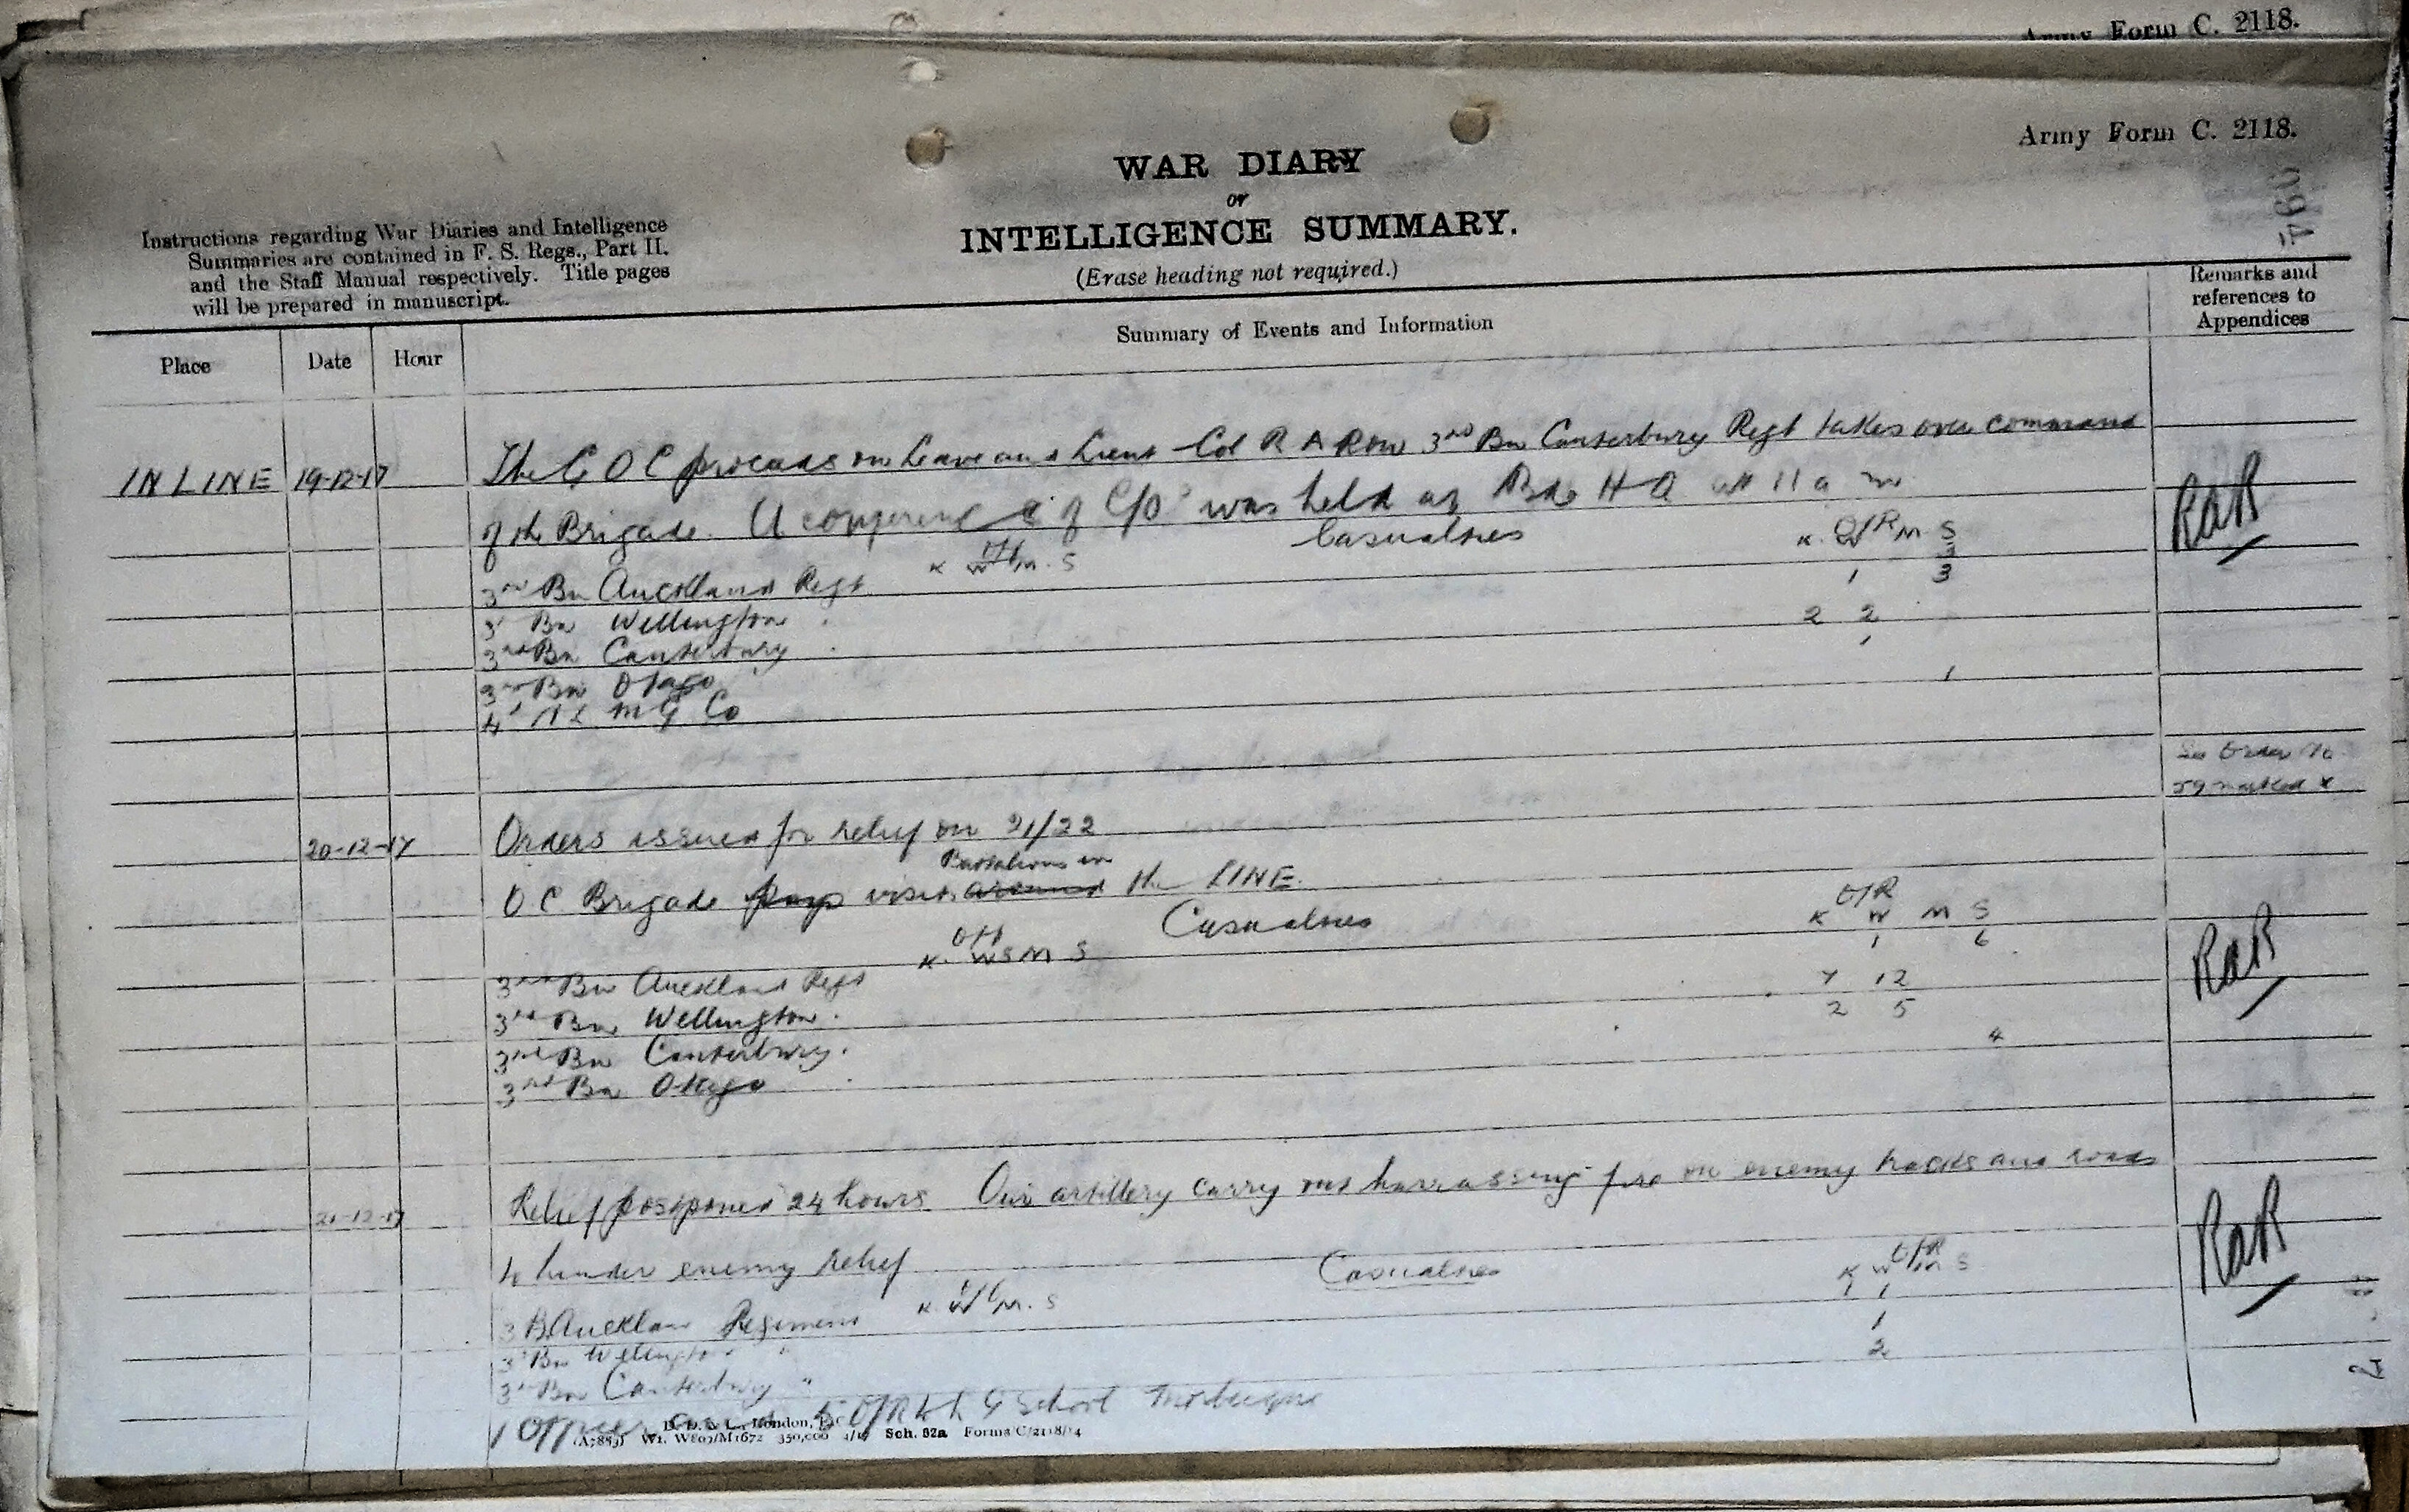 Army Form C. 2118.
Army Form C. 2118.
WAR DIARY
or
INTELLIGENCE SUMMARY.
(Erase heading not required.)
Instructions regarding War Diaries and Intelligence
Summaries are contained in F. S. Regs., Part II.
and the Staff Manual respectively. Title pages
will be prepared in manuscript.
Remarks and
references to
Appendices
Place Date Hour Summary of Events and Information
IN LINE 19-12-17 The G O C proceeds on leave and Lieut-Col R A Row 3rd Bn Canterbury Regt takes over command
of the Brigade. A conference of C/O's was held at Bde H Q at 11 a m
RAR
Casualties O/R
K W M S K W M S
3rd Bn Auckland Regt 1 3
3rd Bn Wellington 2 2
3rd Bn Canterbury 1
3rd Bn Otago 1
4th N Z M G Co
See Order No
59 marked X
20-12-17 Orders issued for relief on 21/22
Battalions in
O C Brigade visits around the LINE.
Casualties O/R
K W M S K W M S
3rd Bn Auckland Regt 1 6
3rd Bn Wellington 7 12
3rd Bn Canterbury 2 5
3rd Bn Otago 4
RAR
21-12-17 Relief postponed 24 hours Our artillery carry out harrassing fire on enemy tracks and roads
to hinder enemy relief
RAR
Casualties O/R
K W M. S K W M S
3 B Auckland Regiment 1 1
3 Bn Wellington " 1
3 Bn Canterbury " 2
1 Officer 5 O/R to L G School
D. D. & L., London, E.C.
(A7883) Wt. W809/M1672 350,000 4/17 Sch. 52a Forms/C/2118/14